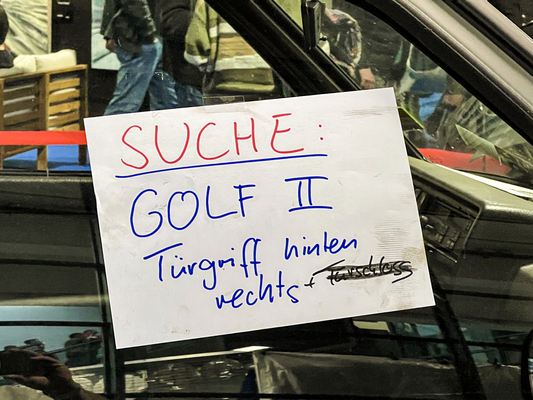 SUCHE:
GOLF II
Türgriff hinten
rechts + Türschloss